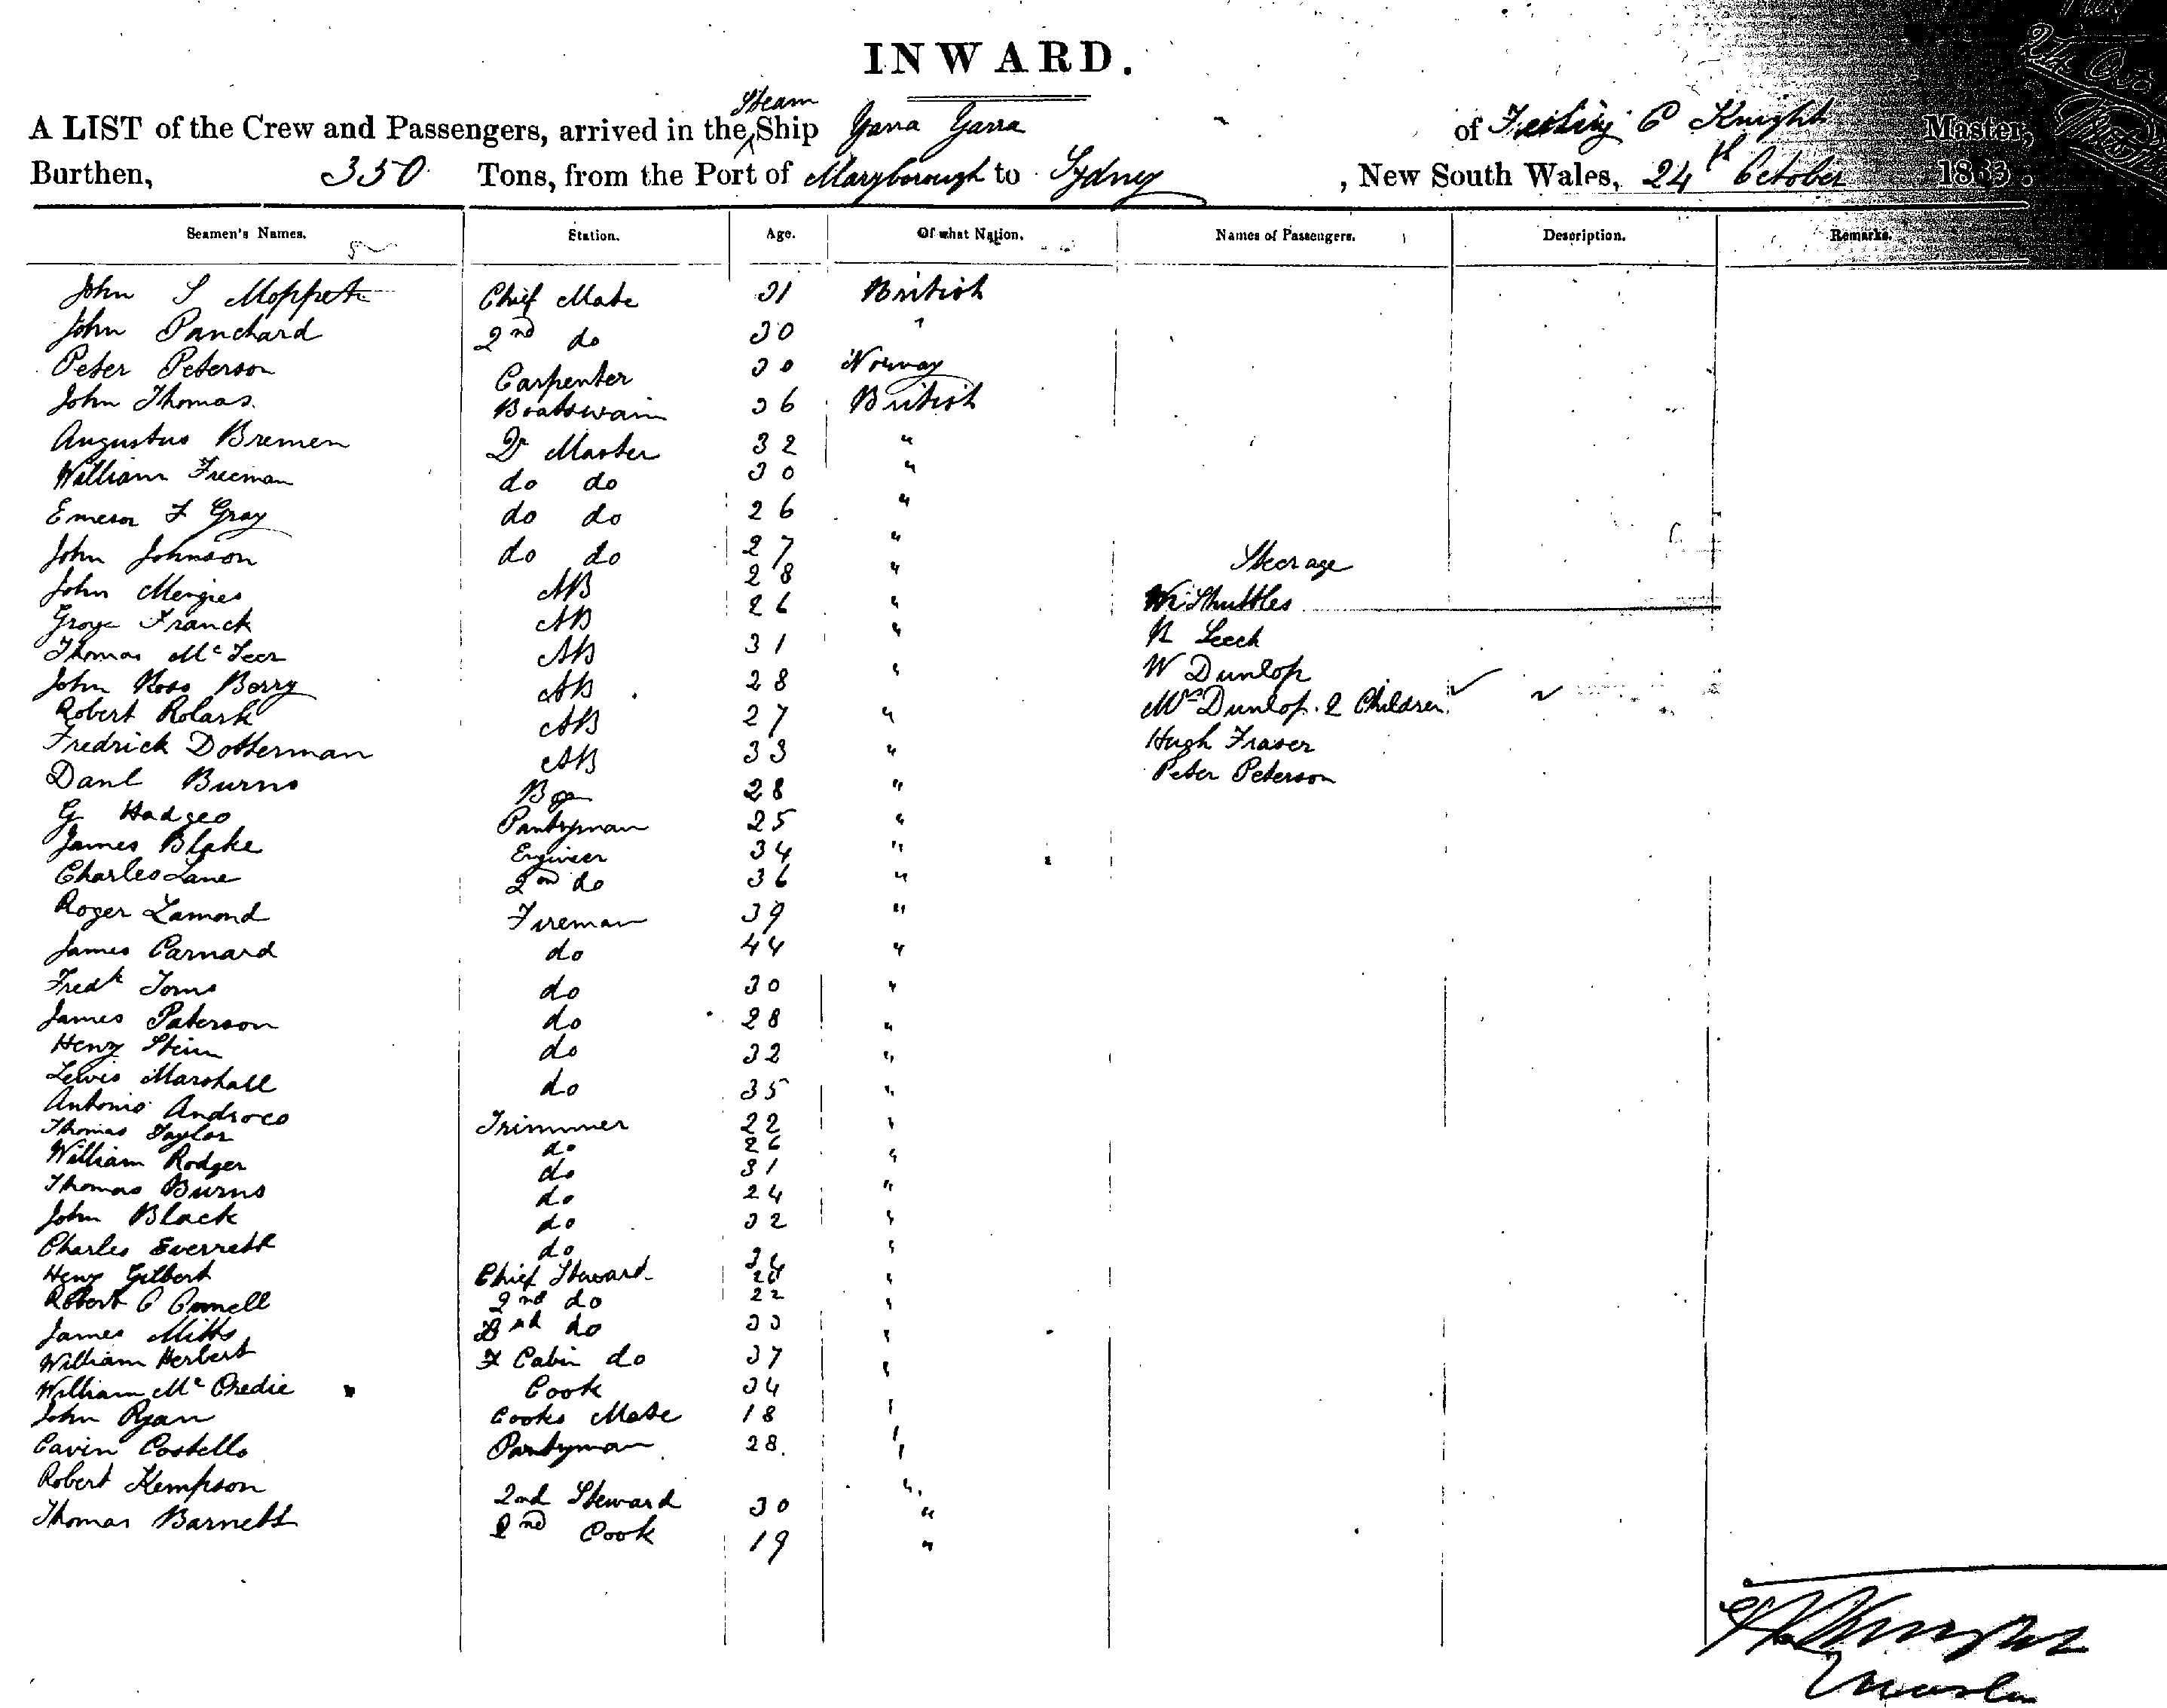 INWARD.
A LIST of the Crew and Passengers, arrived in the Steam Ship Yarra Yarra of Festing C Knight Master,
Burthen, 350 Tons, from the Port of Maryborough to Sydney, New South Wales, 24th October 1863.
Seamen's Names. Station. Age. Of what Nation. Names of Passengers. Description. Remarks.
John S Moppett Chief Mate 31 British
John Panchard 2nd do 30 "
Peter Peterson Carpenter 30 Norway
John Thomas Boatswain 36 British
Augustus Bremen Qr Master 32 "
William Freeman do do 30 "
F Gray do do 26 "
John Johnson do do 27 "
Steerage
John Menzies AB 28 "
Franck AB 26 "
Wm Shuttles
Thomas AB 31 "
R Leech
John Ross Berry AB 28 "
W Dunlop
Robert Rolark AB 27 "
Mrs Dunlop. 2 Children
Fredrick Dotterman AB 33 "
Hugh Fraser
Danl Burns Boy 28 "
Peter Peterson
G Hadges Pantryman 25 "
James Blake Engineer 34 "
Charles Lane 2nd do 36 "
Roger Lamond Fireman 39 "
James Carnard do 44 "
Fredk Toms do 30 "
James Paterson do 28 "
Henry do 32 "
Lewis Marshall do 35 "
Antonio Androco Trimmer 22 "
Thomas Taylor do 26 "
William Rodger do 31 "
Thomas Burns do 24 "
John Black do 32 "
Charles Everrett do "
Henry Gilbert Chief Steward "
Robert 2nd do 22 "
James Mitts do 33 "
William Herbert F Cabin do 37 "
William McCredie Cook 34 "
John Ryan Cooks Mate 18 "
Cavin Costello Pantryman 28. "
Robert Kempson 2nd Steward 30 "
Thomas Barnett 2nd Cook 19 "